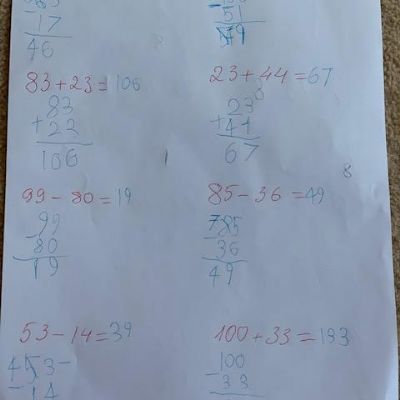 - 17
46
51
49
83+23=106
83
+23
106
23+44=67
23
+44
67
99-80=19
99
-80
19
8
85-36=49
785
-36
49
53-14=39
453-
-14
100+33=133
100
-33